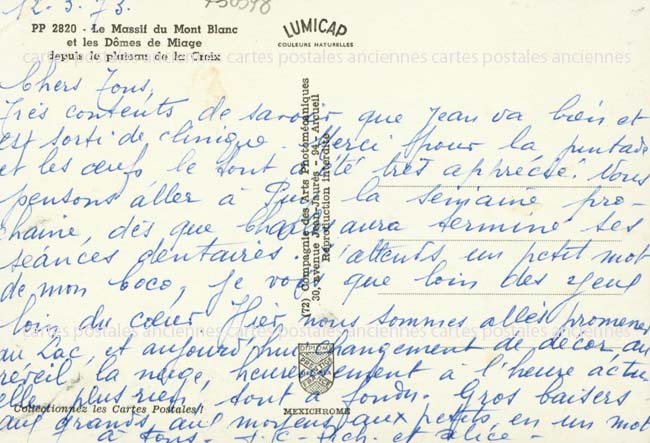 12.3.73.
750598
PP 2820 - Le Massif du Mont Blanc
et les Dômes de Miage
depuis le plateau de la Croix
LUMICAP
COULEURS NATURELLES
cartes postales anciennes cartes postales anciennes cartes postales anciennes
Chers Tous,
Très contents de savoir que Jean va bien et
est sorti de clinique. Merci pour la pintade
et les œufs le tout a été très apprécié. Nous
pensons aller à la semaine pro-
chaine, dès que aura terminé ses
séances dentaires. J'attends un petit mot
de mon coco, je vois que loin des yeux
loin du cœur. Hier, nous sommes allés promener
au Lac, et aujourd'hui changement de décor, au
réveil la neige, heureusement à l'heure actu-
elle plus rien tout a fondu. Gros baisers
aux grands, aux moyens, aux petits, en un mot
à tous. J.C. et Alice.
(72) Compagnie des Arts Photomécaniques
30, avenue Jean-Jaurès - 94 - Arcueil
Reproduction interdite
cartes postales anciennes cartes postales anciennes cartes postales anciennes
Collectionnez les Cartes Postales !
MEXICHROME